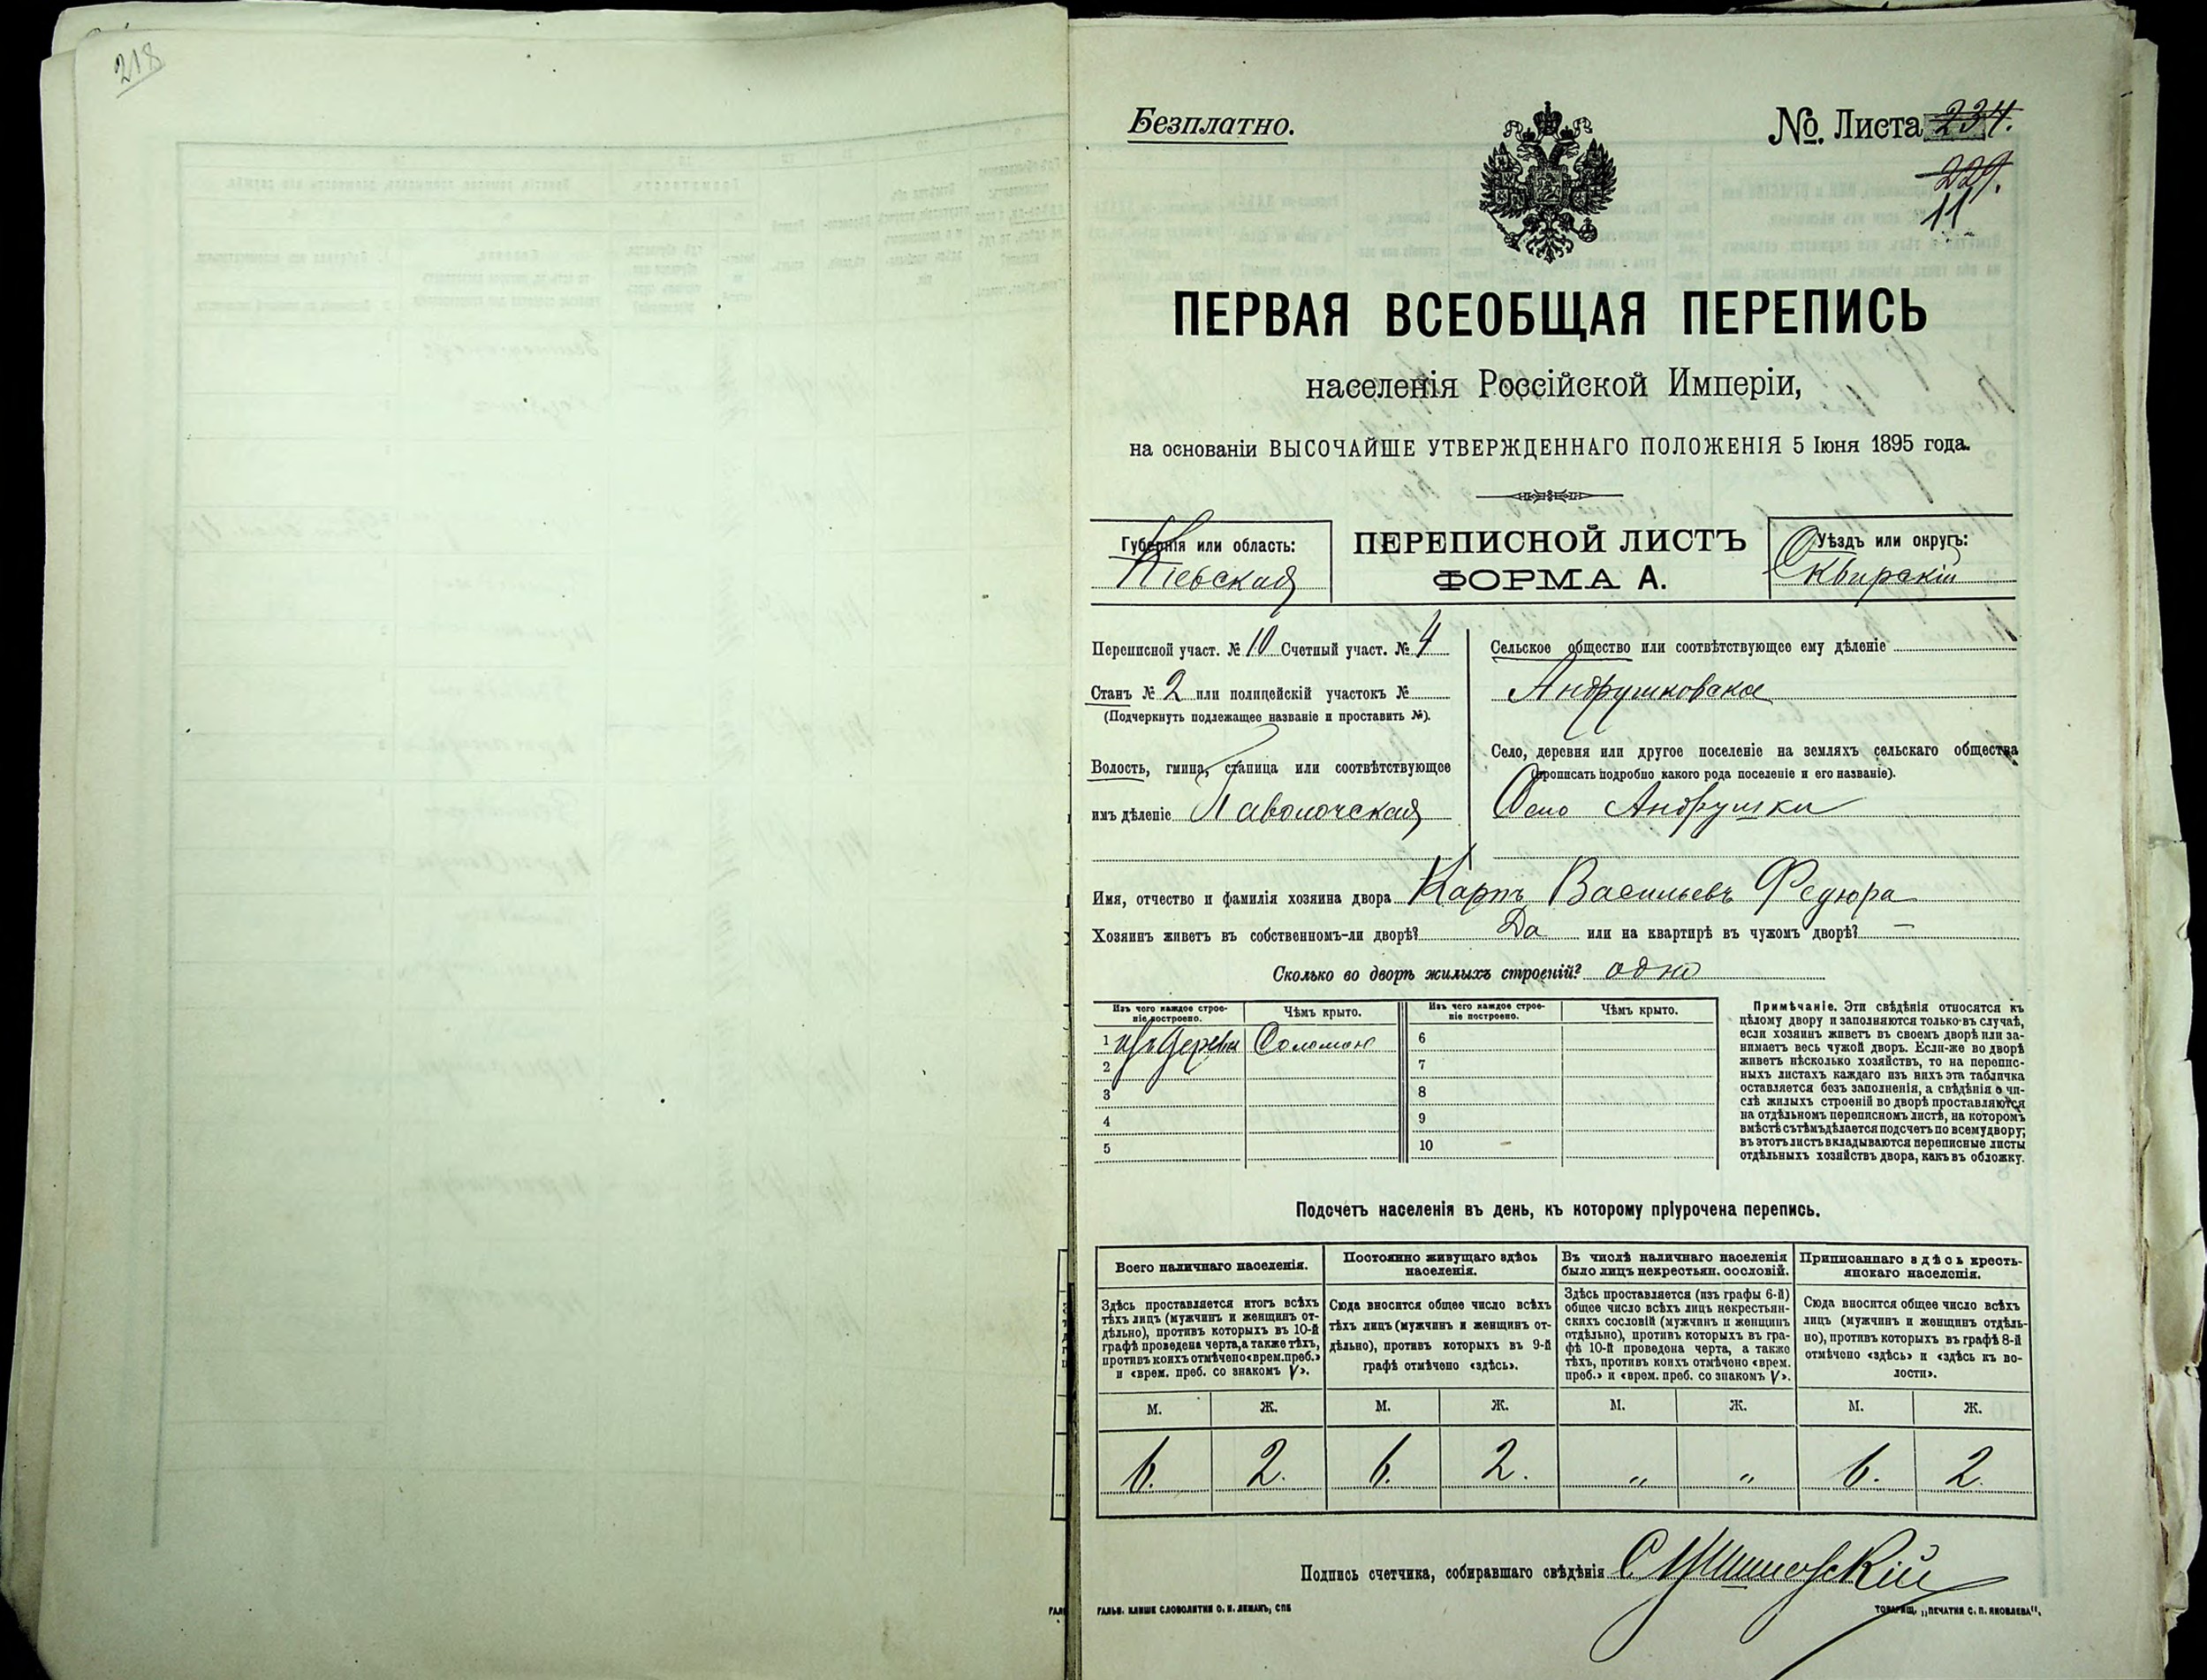 218
Безплатно.
№. Листа 234.
229.
11
ПЕРВАЯ ВСЕОБЩАЯ ПЕРЕПИСЬ
населенія Россійской Имперіи,
на основаніи ВЫСОЧАЙШЕ УТВЕРЖДЕННАГО ПОЛОЖЕНІЯ 5 Іюня 1895 года.
Губернія или область:
Кіевская
ПЕРЕПИСНОЙ ЛИСТЪ
ФОРМА А.
Уѣздъ или округъ:
Сквирскій
Переписной участ. № 10 Счетный участ. № 4
Станъ № 2 или полицейскій участокъ №
(Подчеркнуть подлежащее названіе и проставить №).
Волость, гмина, станица или соотвѣтствующее
имъ дѣленіе Паволочская
Сельское общество или соотвѣтствующее ему дѣленіе
Андрушковское
Село, деревня или другое поселеніе на земляхъ сельскаго общества
(прописать подробно какого рода поселеніе и его названіе).
Село Андрушки
Имя, отчество и фамилія хозяина двора Карпъ Васильевъ Федюра
Хозяинъ живетъ въ собственномъ-ли дворѣ? Да или на квартирѣ въ чужомъ дворѣ? —
Сколько во дворѣ жилыхъ строеній? одно
Изъ чего каждое строе-
ніе построено.
Чѣмъ крыто.
Изъ чего каждое строе-
ніе построено.
Чѣмъ крыто.
1 изъ дерева Соломою
2
3
4
5
6
7
8
9
10
Примѣчаніе. Эти свѣдѣнія относятся къ
цѣлому двору и заполняются только въ случаѣ,
если хозяинъ живетъ въ своемъ дворѣ или за-
нимаетъ весь чужой дворъ. Если-же во дворѣ
живетъ нѣсколько хозяйствъ, то на перепис-
ныхъ листахъ каждаго изъ нихъ эта табличка
оставляется безъ заполненія, а свѣдѣнія о чи-
слѣ жилыхъ строеній во дворѣ проставляются
на отдѣльномъ переписномъ листѣ, на которомъ
вмѣстѣ съ тѣмъ дѣлается подсчетъ по всему двору;
въ этотъ листъ вкладываются переписные листы
отдѣльныхъ хозяйствъ двора, какъ въ обложку.
Подсчетъ населенія въ день, къ которому пріурочена перепись.
Всего наличнаго населенія.
Здѣсь проставляется итогъ всѣхъ
тѣхъ лицъ (мужчинъ и женщинъ от-
дѣльно), противъ которыхъ въ 10-й
графѣ проведена черта, а также тѣхъ,
противъ коихъ отмѣчено «врем. преб.»
и «врем. преб. со знакомъ V».
Постоянно живущаго здѣсь
населенія.
Сюда вносится общее число всѣхъ
тѣхъ лицъ (мужчинъ и женщинъ от-
дѣльно), противъ которыхъ въ 9-й
графѣ отмѣчено «здѣсь».
Въ числѣ наличнаго населенія
было лицъ некрестьян. сословій.
Здѣсь проставляется (изъ графы 6-й)
общее число всѣхъ лицъ некрестьян-
скихъ сословій (мужчинъ и женщинъ
отдѣльно), противъ которыхъ въ гра-
фѣ 10-й проведена черта, а также
тѣхъ, противъ коихъ отмѣчено «врем.
преб.» и «врем. преб. со знакомъ V».
Приписаннаго здѣсь кресть-
янскаго населенія.
Сюда вносится общее число всѣхъ
лицъ (мужчинъ и женщинъ отдѣль-
но), противъ которыхъ въ графѣ 8-й
отмѣчено «здѣсь» и «здѣсь къ во-
лости».
М. Ж. М. Ж. М. Ж. М. Ж.
6. 2. 6. 2. " " 6. 2.
Подпись счетчика, собиравшаго свѣдѣнія
ГАЛЬВ. КЛИШЕ СЛОВОЛИТНИ О. И. ЛЕМАНЪ, СПБ
ТОВАРИЩ. „ПЕЧАТНЯ С. П. ЯКОВЛЕВА“.